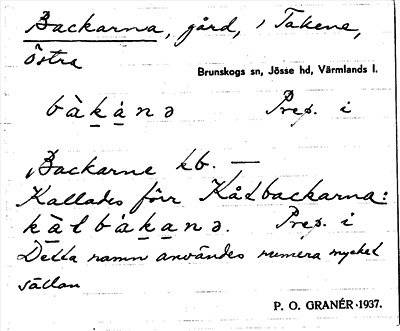 Backarna, gård, i Takene,
östra
Brunskogs sn, Jösse hd, Värmlands l.
bàk̲á̲nə Prep. i
Backarne kb. —
Kallades förr Kålbackarna:
kàlbák̲a̲nə. Prep. i
Detta namn användes numera mycket
sällan
P. O. GRANÉR · 1937.